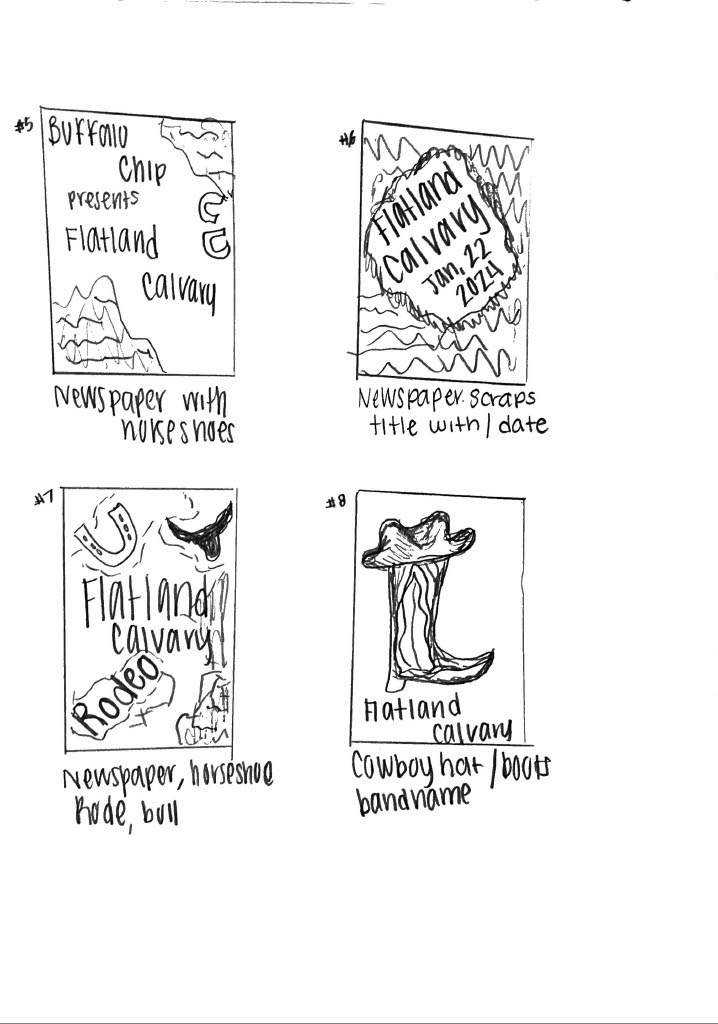 #5
Buffalo
Chip
presents
Flatland
Calvary
Newspaper with
horseshoes
#6
Flatland
Calvary
Jan, 22
2024
Newspaper scraps
title with / date
#7
Flatland
Calvary
Rodeo
Newspaper, horseshoe
Rode, bull
#8
Flatland
Calvary
Cowboy hat / boots
bandname